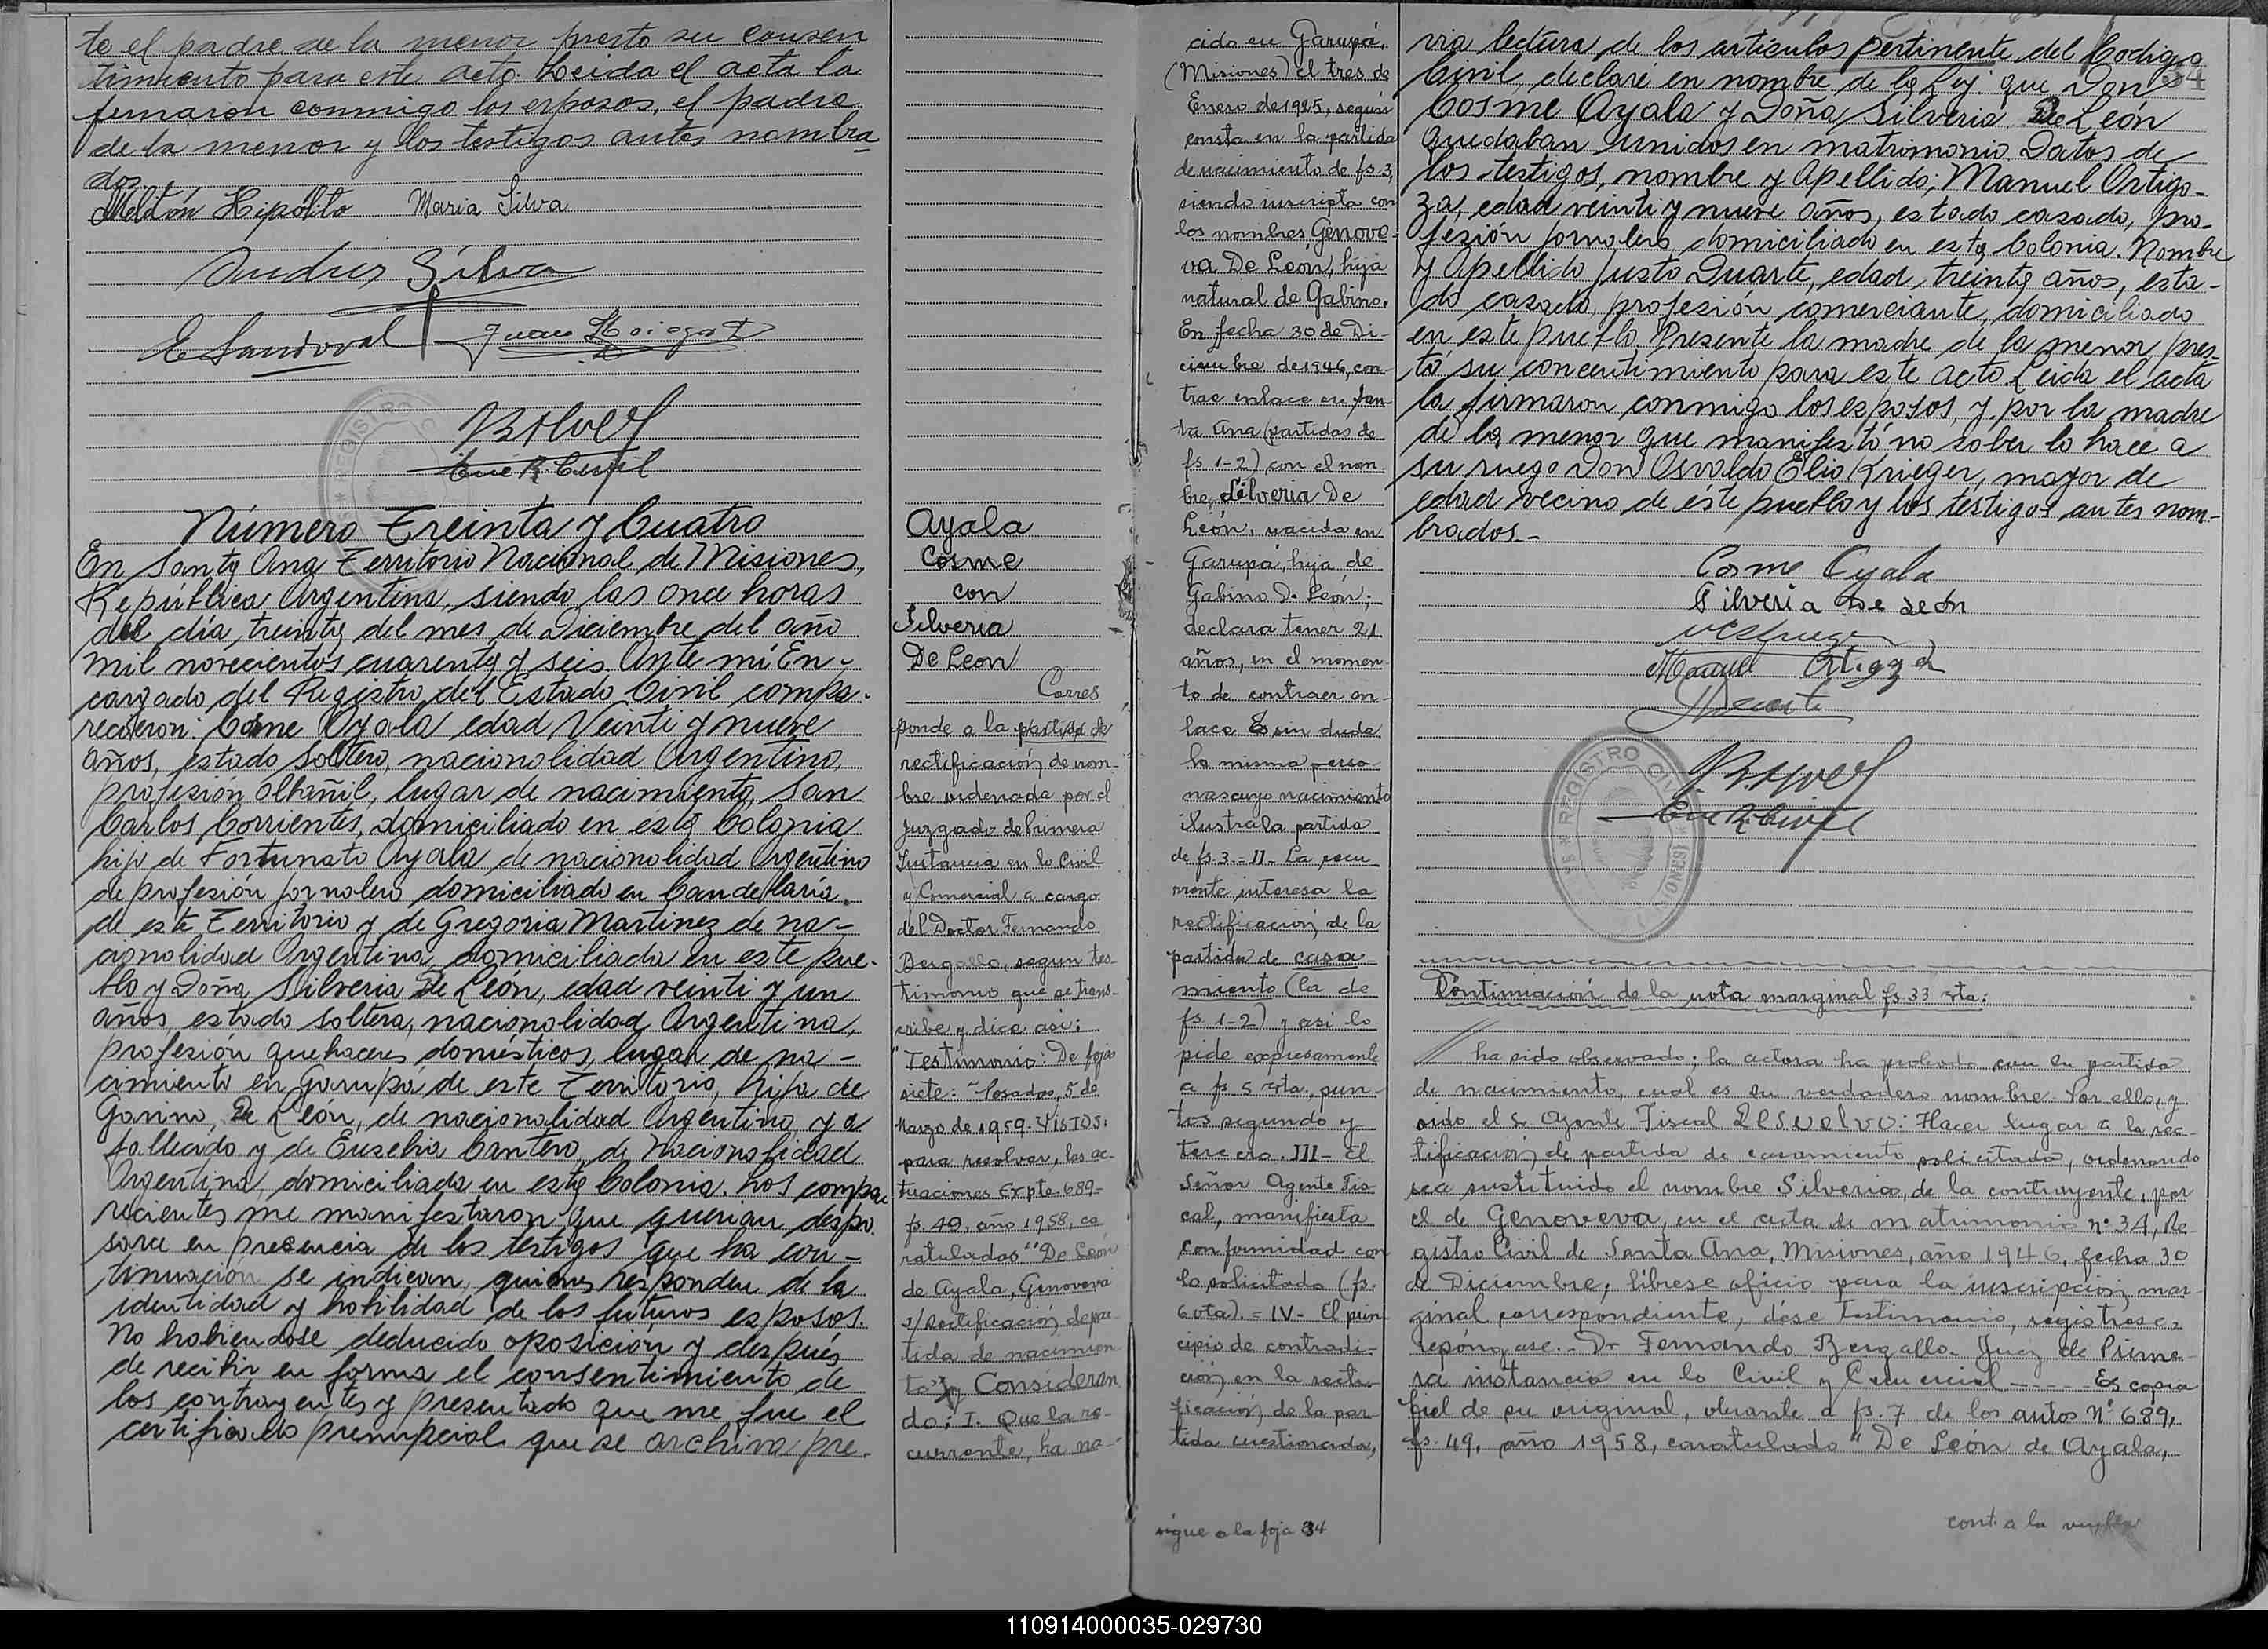 te el padre de la menor presto su consen
timiento para este acto. Leida el acta la
firmaron conmigo los esposos, el padre
de la menor y los testigos antes nombra
dos
Melitón Hipólito Maria Silva
Andres Silva
E Sandoval Juan
Número Treinta y Cuatro
En Santa Ana Territorio Nacional de Misiones,
República Argentina, siendo las once horas
del día, treinta del mes de Diciembre del año
mil novecientos cuarenta y seis. Ante mí En-
cargado del Registro del Estado Civil compa-
recieron: Cosme Ayala edad Veinti y nueve
años, estado soltero, nacionalidad Argentino,
profesión albañil, lugar de nacimiento, San
Carlos Corrientes, domiciliado en esta Colonia
hijo de Fortunato Ayala de nacionalidad Argentino
de profesión jornalero domiciliado en Candelaria.
de este Territorio y de Gregoria Martinez de na-
cionalidad Argentina, domiciliada en este pue-
blo y Doña Silveria De León, edad veinti y un
años, estado soltera, nacionalidad Argentina,
profesión quehaceres domésticos, lugar de na-
cimiento en Garupá de este Territorio, hija de
Gavino, De León, de nacionalidad Argentino, ya
fallecido y de Eusebia Cantero, de Nacionalidad
Argentina, domiciliada en esta Colonia. Los compa
recientes me manifestaron que querian despo.
sarce en presencia de los testigos que ha con-
tinuación se indican, quienes responden de la
identidad y habilidad de los futuros esposos.
No habiendose deducido oposición y después
de recibir en forma el consentimiento de
los contrayentes y presentado que me fue el
certificado prenupcial que se archiva pre-
Ayala
Cosme
con
Silveria
De Leon
Corres
ponde a la partida de
rectificación de nom-
bre ordenada por el
Juzgado de Primera
Instancia en lo Civil
y Comercial a cargo
del Doctor Fernando
Bergallo, segun tes
timonio que se trans-
cribe y dice asi:
"Testimonio: De fojas
siete: - Posadas, 5 de
Marzo de 1959. VISTOS:
para resolver, las ac-
tuaciones Expte. 689-
fs. 49, año 1958, ca
ratulados "De León
de Ayala, Genoveva
s/ Rectificación de par
tida de nacimien
to" y Consideran
do: I. Que la re-
currente, ha na-
cido en Garupá,
(Misiones) el tres de
Enero de 1925, según
consta en la partida
de nacimiento de fs 3,
siendo inscripta con
los nombres Genove-
va De León, hija
natural de Gabino.
En fecha 30 de Di-
ciembre de 1946, con-
trae enlace en San-
ta Ana (partidas de
fs 1-2) con el nom-
bre, Silveria De
León, nacida en
Garupá, hija de
Gabino D. León;
declara tener 21
años, en el momen-
to de contraer en-
lace. Es sin duda
la misma perso
na cuyo nacimiento
ilustra la partida
de fs 3.- II- La recu
rrente interesa la
rectificación de la
partida de casa-
miento (la de
fs. 1-2) y asi lo
pide expresamente
a fs 5 vta. pun-
tos segundo y
tercero. III- El
Señor Agente Fis
cal, manifiesta
conformidad con
lo solicitado (fs.
6 vta). = IV- El prin
cipio de contradi-
ción en la recti-
ficación de la par-
tida cuestionada,
sigue a la foja 34
34
via lectura de los articulos pertinente del Codigo
Civil, declaré en nombre de la Ley: que Don
Cosme Ayala y Doña Silveria De León
quedaban unidos en matrimonio. Datos de
los testigos, nombre y apellido; Manuel Ortigo-
za, edad veinti y nueve años, estado casado, pro-
fesión jornalero domiciliado en esta Colonia. Nombre
y Apellido Justo Duarte, edad, treinta años, esta-
do casado, profesión comerciante, domiciliado
en este pueblo. Presente la madre de la menor pres-
tó su concentimiento para este acto. Leida el acta
la firmaron conmigo los esposos, y por la madre
de la menor que manifestó no saber lo hace a
su ruego Don Osvaldo Elio Krieger, mayor de
edad vecino de este pueblo y los testigos antes nom-
brados.-
Cosme Ayala
Silveria De León
Manuel Ortigoza
JDuarte
REGISTRO CIVIL
(MISIONES)
Continuación de la nota marginal fs 33 vta:
ha sido observado; la actora ha probado con la partida
de nacimiento, cual es su verdadero nombre. Por ello, y
oido el Sr Agente Fiscal RESUELVO: Hacer lugar a la rec-
tificación de partida de casamiento solicitada, ordenando
sea sustituido el nombre Silveria, de la contrayente, por
el de Genoveva, en el acta de matrimonio nº 34, Re-
gistro Civil de Santa Ana, Misiones, año 1946, fecha 30
de Diciembre; librese oficio para la inscripción mar-
ginal correspondiente, dése testimonio, registrese,
repóngase.- Dr Fernando Bergallo- Juez de Prime-
ra instancia en lo Civil y Comercial ---- Es copia
fiel de su original, obrante a fs. 7 de los autos Nº 689,
fs. 49, año 1958, caratulado "De León de Ayala,
cont. a la vuelta
110914000035-029730